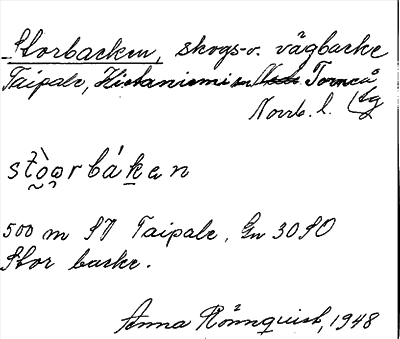 Storbacken, skogs- o. vägbacke
Taipale, Hietaniemi sn Torneå
Norrb. l.
stòərbáken
500 m SV Taipale, Gn 30 SO
Stor backe.
Anna Rönnquist, 1948